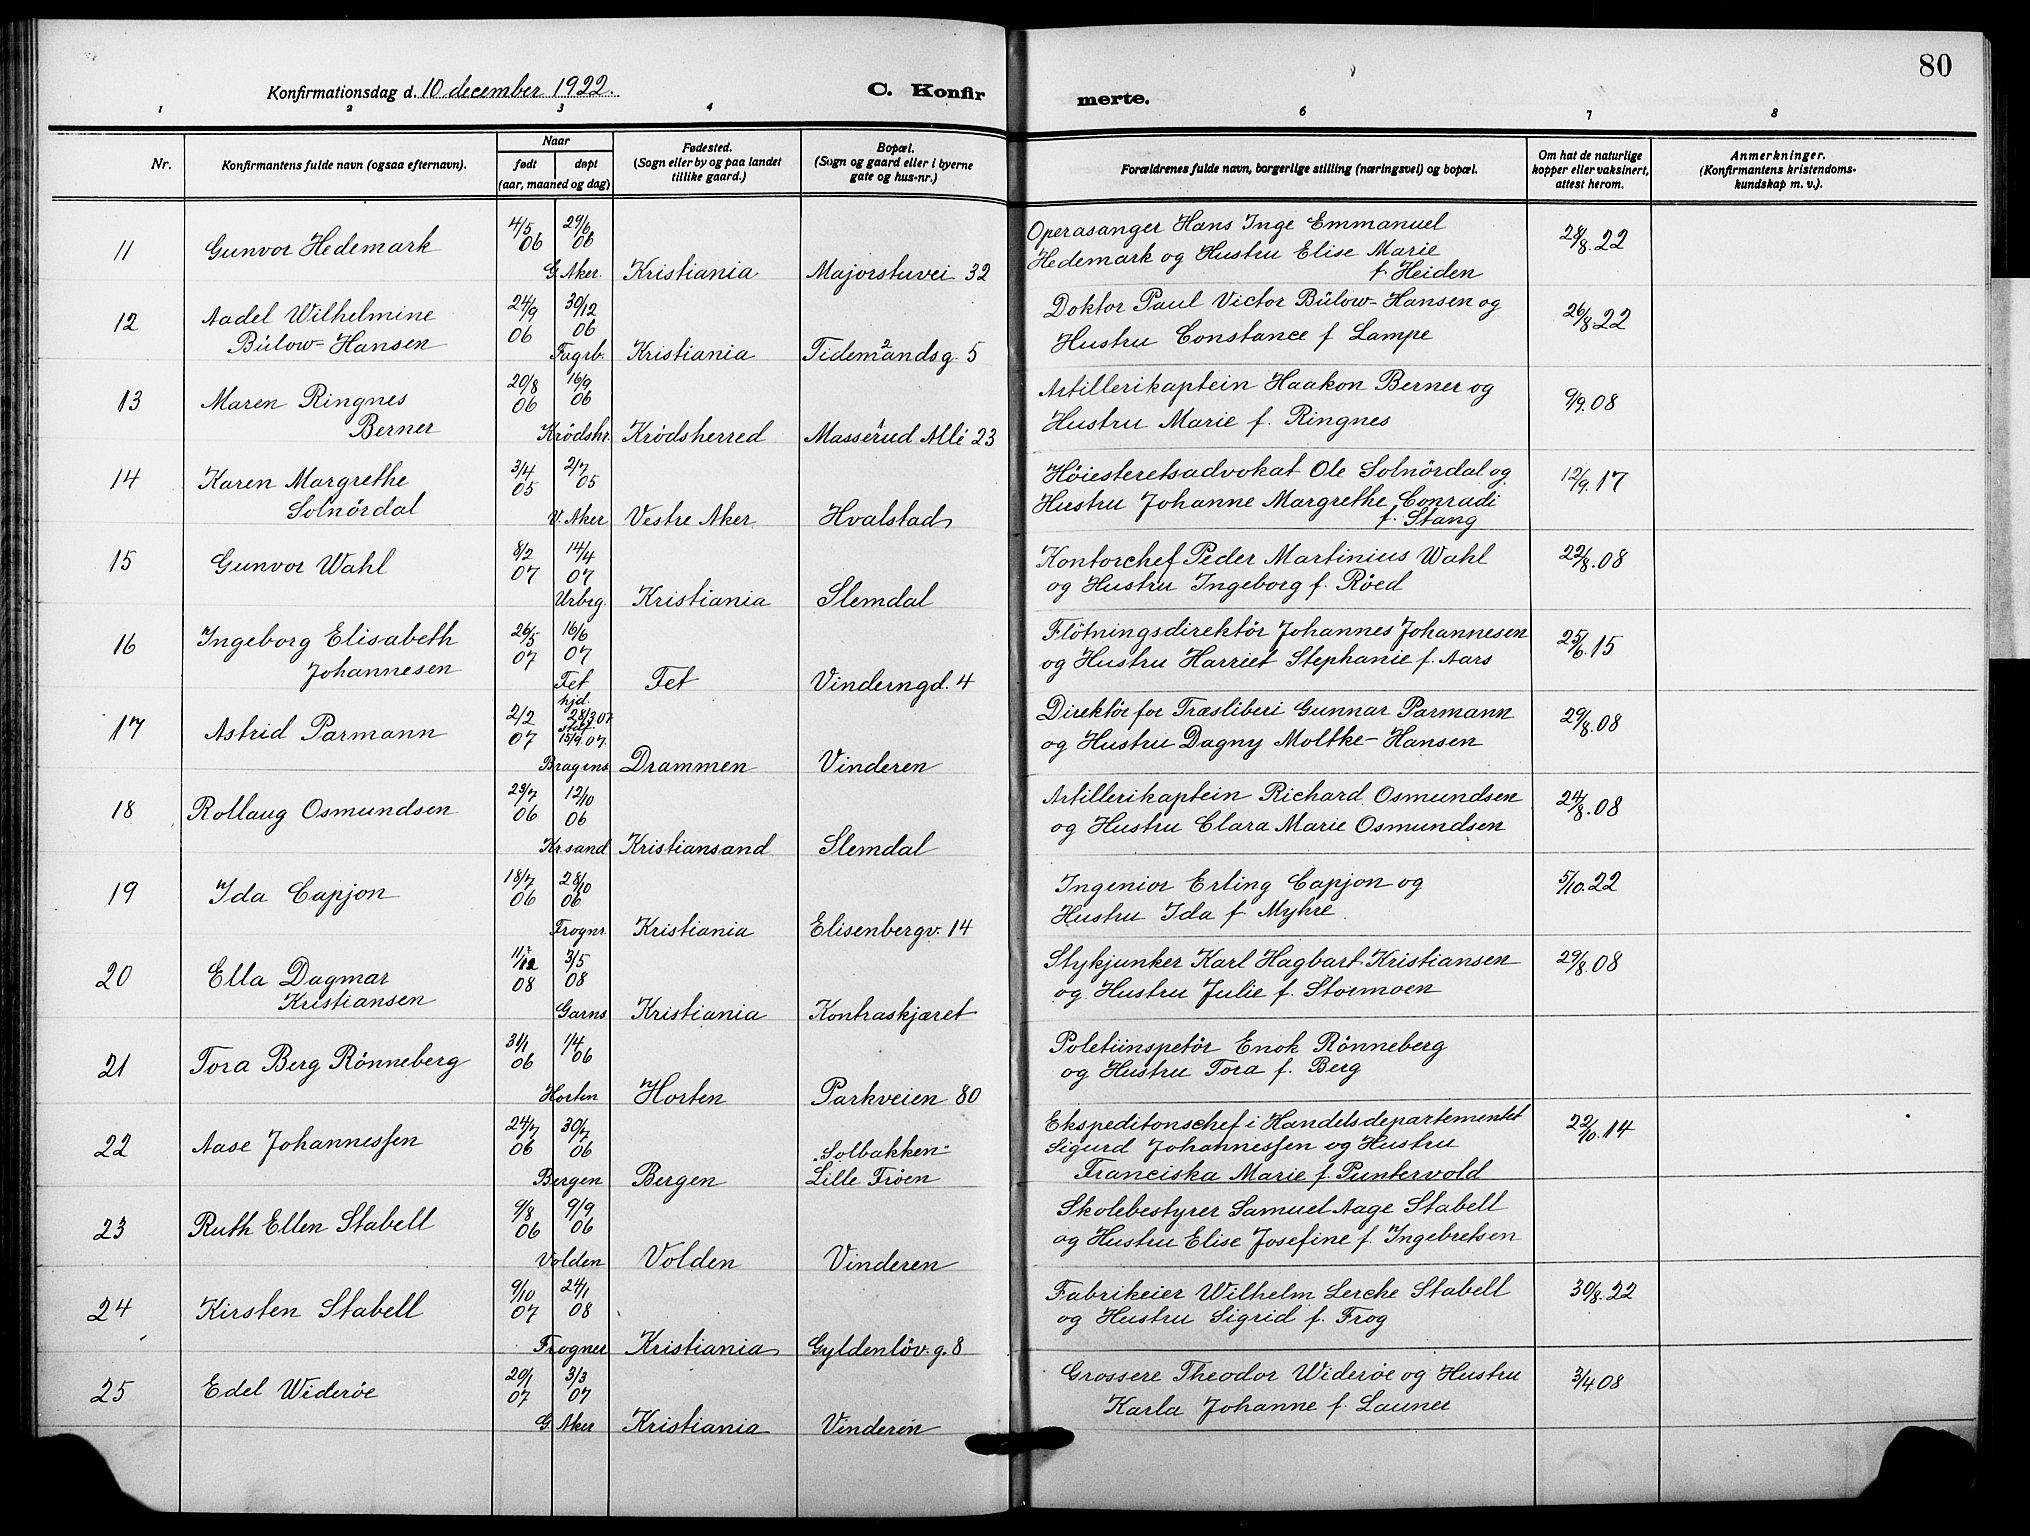 80
Konfirmationsdag d. 10 december 1922.
C. Konfir
merte.
1 2 3 4 6 7 8
Nr.
Konfirmantens fulde navn (ogsaa efternavn).
Naar
født døpt
(aar, maaned og dag)
Fødested.
(Sogn eller by og paa landet
tillike gaard.)
Bopæl.
(Sogn og gaard eller i byerne
gate og hus-nr.)
Forældrenes fulde navn, borgerlige stilling (næringsvei) og bopæl.
Om hat de naturlige
kopper eller vaksinert,
attest herom.
Anmerkninger.
(Konfirmantens kristendoms-
kundskap m. v.).
11 Gunvor Hedemark 4/5 06 29/6 06
G. Aker. Kristiania Majorstuvei 32
Operasanger Hans Inge Emmanuel
Hedemark og Hustru Elise Marie
f. Heiden
28/8.22
12 Aadel Wilhelmine 24/9 06 30/12 06
Bülow=Hansen
Fagrb. Kristiania Tidemandsg. 5
2
Doktor Paul Victor Bülow-Hansen og
Hustru Constance f Lampe
26/8 22
13 Maren Ringnes 20/8 06 16/9 06
Berner
Krödshr. Krödsherred Masserud Allé 23
Artillerikaptein Haakon Berner og
Hustru Marie f. Ringnes
9/9.08
14 Karen Margrethe 3/4 05 2/7 05
Solnördal
V. Aker Vestre Aker Hvalstad
Höiesteretsadvokat Ole Solnördal og
Hustru Johanne Margrethe Conradi
f. Stang
12/9.17
15 Gunvor Wahl 8/2 07 14/4 07
Urbrg. Kristiania Slemdal
Kontorchef Peder Martinius Wahl
og Hustru Ingeborg f. Röed
22/8.08
16 Ingeborg Elisabeth 26/5 07 16/6 07
Johannesen
Fet Fet Vinderngd. 4
Flötningsdirektör Johannes Johannesen
og Hustru Harriet Stephanie f. Aars
25/6.15
17 Astrid Parmann 2/2 07 hjd. 28/3 07 stdf. 15/9.07.
Bragens Drammen Vinderen
Direktör for Træsliberi Gunnar Parmann
og Hustru Dagny Moltke-Hansen
29/8.08
18 Rollaug Osmundsen 29/7 06 12/10 06
Kr.sand Kristiansand Slemdal
Artillerikaptein Richard Osmundsen
og Hustru Clara Marie Osmundsen
24/8.08
19 Ida Capjon 18/7 06 28/10 06
Frognr. Kristiania Elisenbergv. 14
Ingeniør Erling Capjon og
Hustru Ida f Myhre
5/10.22
20 Ella Dagmar 11/12 08 3/5 08
Kristiansen
Garns Kristiania Kontraskjæret
Stykjunker Karl Hagbart Kristiansen
og Hustru Julie f. Stormoen
29/8.08
21 Tora Berg Rönneberg 31/1 06 1/4 06
Horten Horten Parkveien 80
Poletiinspetör Enok Rönneberg
og Hustru Tora f. Berg
22 Aase Johannessen 24/7 06 30/7 06
"Solbakken"
Bergen Bergen Lille Fröen
Ekspeditonschef i Handelsdepartementet
Sigurd Johannessen og Hustru
Franciska Marie f. Puntervold
22/10.14
23 Ruth Ellen Stabell 9/8 06 9/9 06
Volden Volden Vinderen
Skolebestyrer Samuel Aage Stabell
og Hustru Elise Josefine f. Ingebretsen
24 Kirsten Stabell 9/10 07 24/1 08
Frogner Kristiania Gyldenlöv.g. 8
Fabrikeier Wilhelm Lerche Stabell
og Hustru Sigrid f. Frog
30/8.22
25 Edel Wideröe 20/1 07 3/3 07
G. Aker Kristiania Vinderen
Grossere Theodor Wideröe og Hustru
Karla Johanne f. Launer
3/4.08